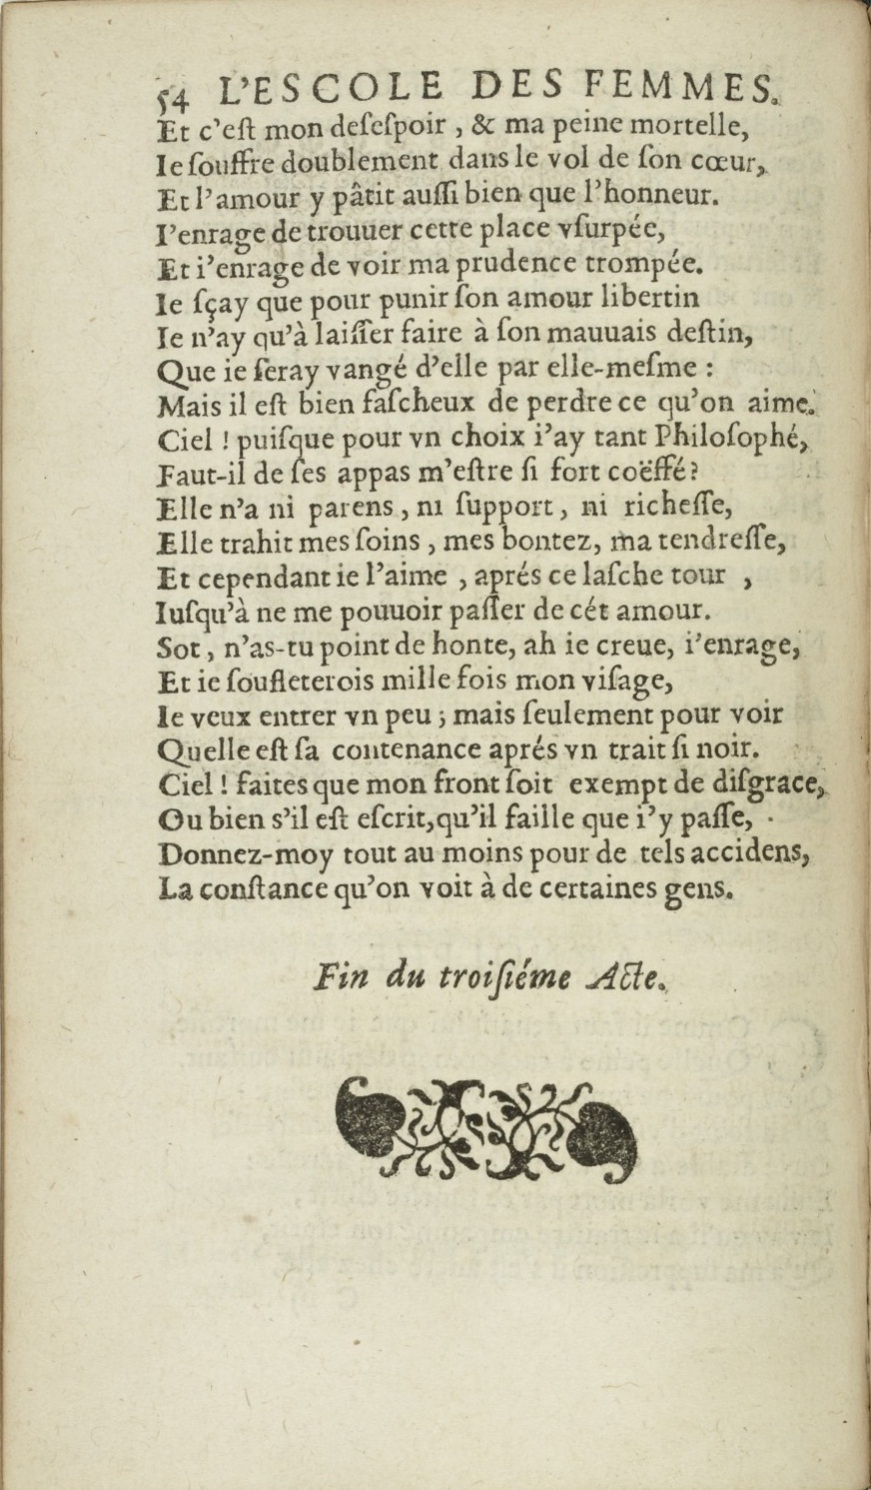 54 L'ESCOLE DES FEMMES.
Et c'eſt mon deſeſpoir, & ma peine mortelle,
Ie ſouffre doublement dans le vol de ſon cœur,
Et l'amour y pâtit auſſi bien que l'honneur.
I'enrage de trouuer cette place vſurpée,
Et i'enrage de voir ma prudence trompée.
Ie ſçay que pour punir ſon amour libertin
Ie n'ay qu'à laiſſer faire à ſon mauuais deſtin,
Que ie ſeray vangé d'elle par elle-meſme :
Mais il eſt bien faſcheux de perdre ce qu'on aime.
Ciel ! puiſque pour vn choix i'ay tant Philoſophé,
Faut-il de ſes appas m'eſtre ſi fort coëffé?
Elle n'a ni parens, ni ſupport, ni richeſſe,
Elle trahit mes ſoins, mes bontez, ma tendreſſe,
Et cependant ie l'aime, aprés ce laſche tour,
Iuſqu'à ne me pouuoir paſſer de cét amour.
Sot, n'as-tu point de honte, ah ie creue, i'enrage,
Et ie ſoufleterois mille fois mon viſage,
Ie veux entrer vn peu ; mais ſeulement pour voir
Quelle eſt ſa contenance aprés vn trait ſi noir.
Ciel ! faites que mon front ſoit exempt de diſgrace,
Ou bien s'il eſt eſcrit, qu'il faille que i'y paſſe,
Donnez-moy tout au moins pour de tels accidens,
La conſtance qu'on voit à de certaines gens.
Fin du troiſiéme Acte.